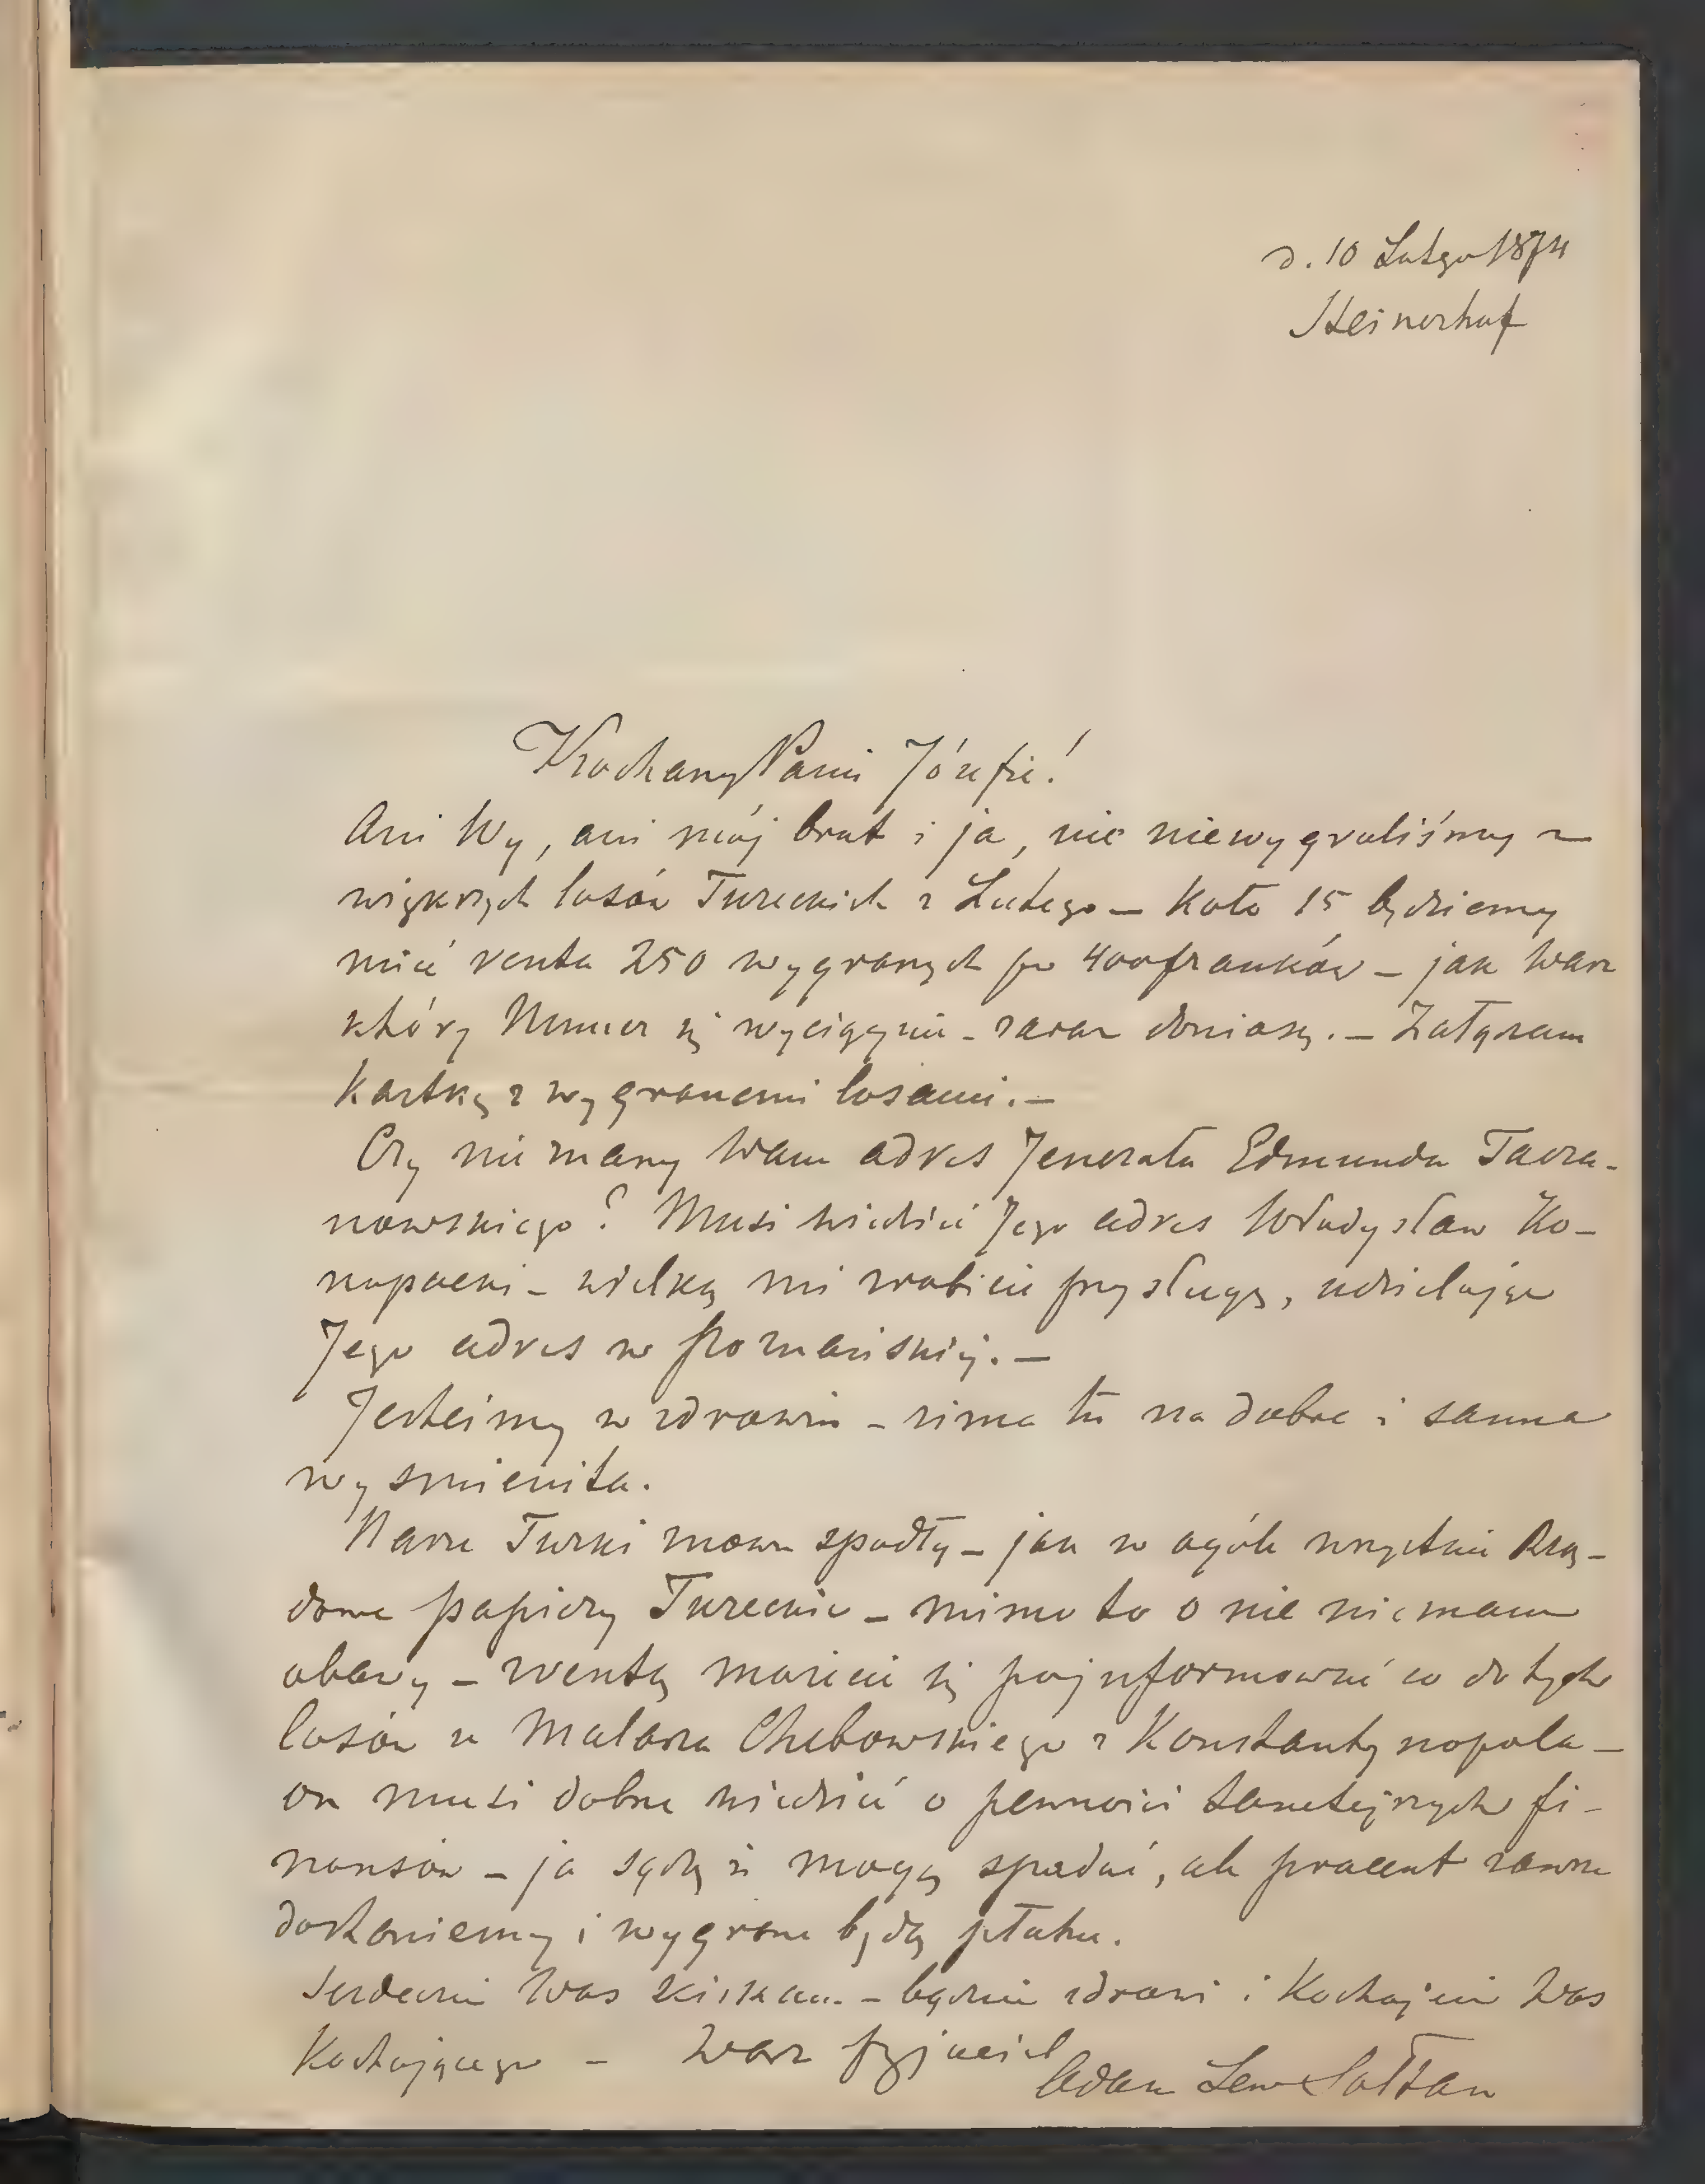 d. 10 Lutego 1874
Steinerhof
Kochany Panie Józefie!
Ani Wy, ani mój brat i ja, nic niewygraliśmy z
większych losów Tureckich z Lutego – koło 15 będziemy
mieć reszta 250 wygranych po 400 franków – jak Wasz
który Numer się wyciągnie – zaraz doniosę. – Załączam
kartkę z wygranemi losami. –
Czy nie macie Wam adres Jenerała Edmunda Tacza-
nowskiego? Musi wiedzieć Jego adres Władysław Ko-
nopacki – wielką mi zrobicie przysługę, udzielając
Jego adres w Poznańskiej. –
Jesteśmy w zdrowiu – zima tu na dobre i sanna
wyśmienita.
Nasze Turki znowu spadły – jak w ogóle wszystkie Rzą-
dowe papiery Tureckie – mimo to o nie nie mam
obawy – zresztą możecie się poinformować co do tych
losów u Malarza Chlebowskiego z Konstantynopola –
on musi dobrze wiedzieć o pewności tamtejszych fi-
nansów – ja sądzę iż mogą spadać, ale procent zawsze
dostaniemy i wygrane będą płatne.
Serdecznie Was ściskam – bądźcie zdrowi i Kochajcie Was
Kochającego – Wasz przyjaciel
Adam Lew Sołtan